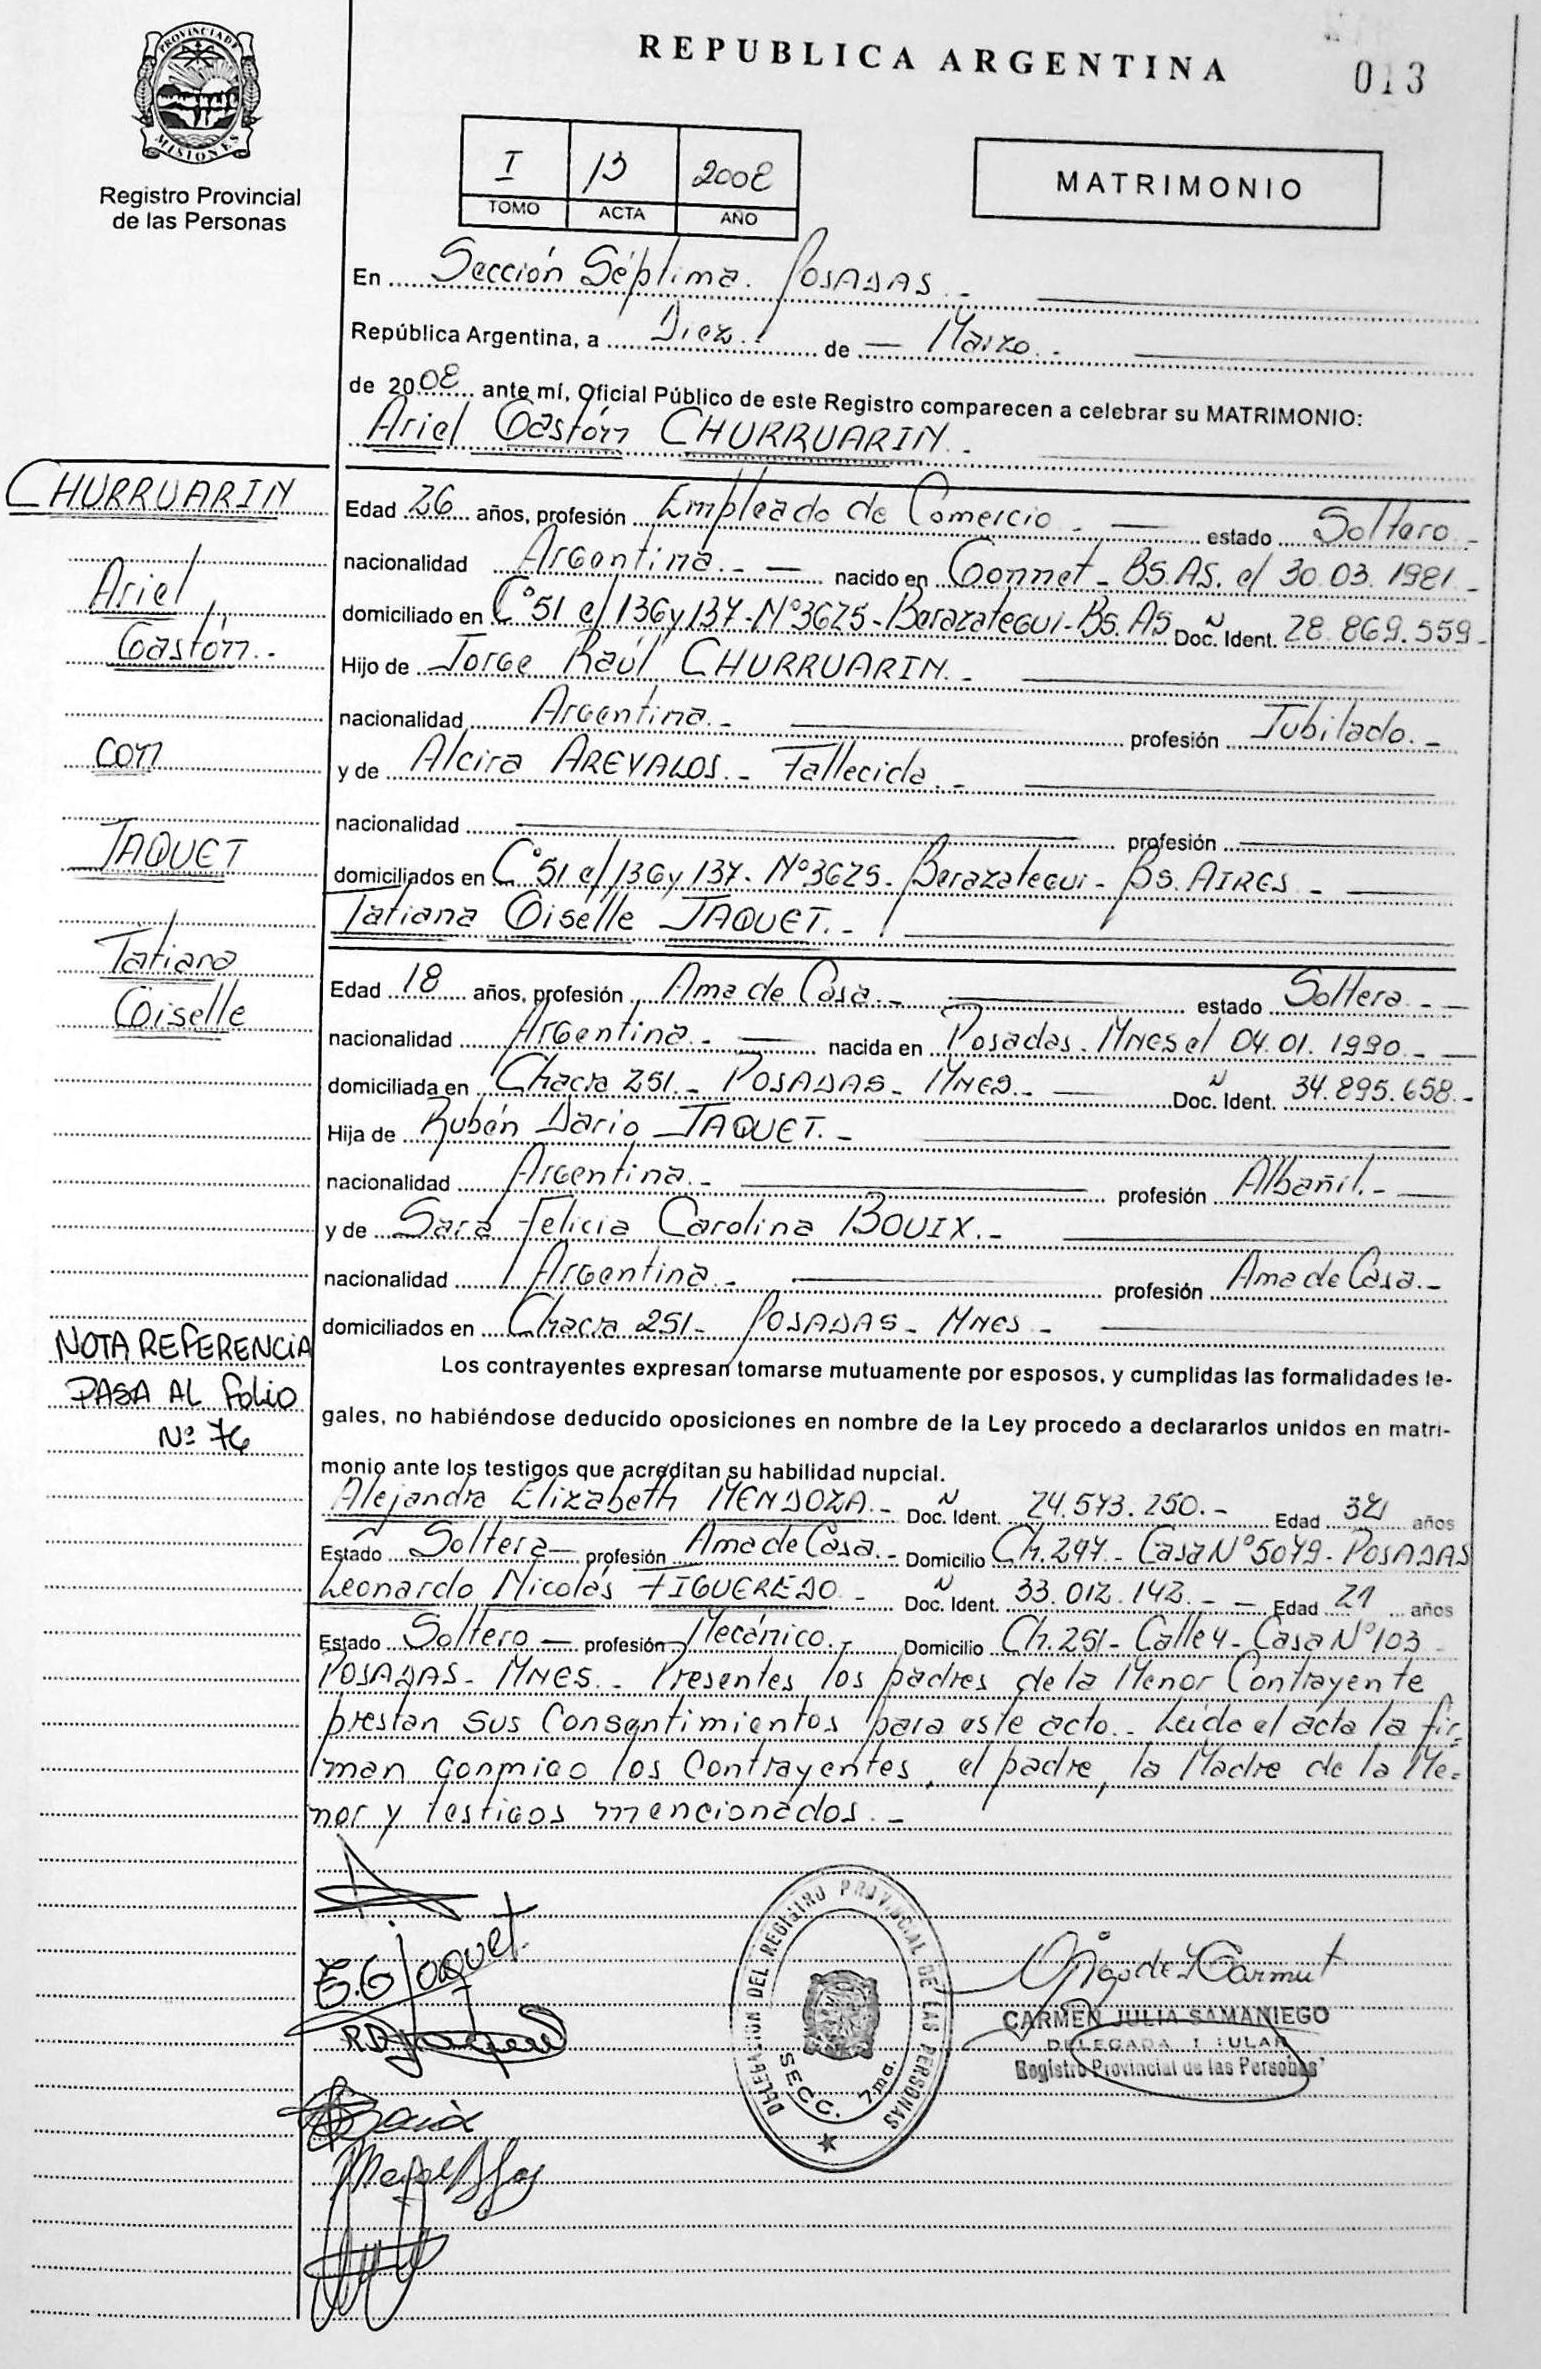 REPUBLICA ARGENTINA
013
PROVINCIA DE
MISIONES
Registro Provincial
de las Personas
I 13 2008
TOMO ACTA AÑO
MATRIMONIO
En Sección Séptima. POSADAS.-
República Argentina, a Diez.- de - Marzo.-
de 2008 ante mí, Oficial Público de este Registro comparecen a celebrar su MATRIMONIO:
Ariel Gastón CHURRUARIN.-
CHURRUARIN
Ariel
Gastón.-
con
JAQUET
Tatiana
Giselle
Edad 26 años, profesión Empleado de Comercio.- estado Soltero.-
nacionalidad Argentina.- nacido en Gonnet- BS.AS. el 30.03.1981.-
domiciliado en C°51 e/136y137-N°3625-Berazategui-BS.AS Doc. Ident. N 28.869.559-
Hijo de Jorge Raúl CHURRUARIN.-
nacionalidad Argentina.- profesión Jubilado.-
y de Alcira AREVALOS.- Fallecida.-
nacionalidad profesión
domiciliados en C°51 e/136y137- N°3625- Berazategui- BS.AIRES-
Tatiana Giselle JAQUET.-
Edad 18 años, profesión Ama de Casa.- estado Soltera.-
nacionalidad Argentina.- nacida en Posadas. Mnes el 04.01.1990.-
domiciliada en Chacra 251.- POSADAS- MNES.- Doc. Ident. N 34.895.658.-
Hija de Rubén Dario JAQUET.-
nacionalidad Argentina.- profesión Albañil.-
y de Sara Felicia Carolina BOUIX.-
nacionalidad Argentina.- profesión Ama de Casa.-
domiciliados en Chacra 251- POSADAS- MNES-
NOTA REFERENCIA
PASA AL folio
Nº 76
Los contrayentes expresan tomarse mutuamente por esposos, y cumplidas las formalidades le-
gales, no habiéndose deducido oposiciones en nombre de la Ley procedo a declararlos unidos en matri-
monio ante los testigos que acreditan su habilidad nupcial.
Alejandra Elizabeth MENDOZA.- Doc. Ident. N 24.573.250.- Edad años
Estado Soltera- profesión Ama de Casa.- Domicilio Ch.247- Casa N°5079- POSADAS
Leonardo Nicolás FIGUEREDO- Doc. Ident. N 33.012.142.- - Edad 21 años
Estado Soltero- profesión Mecánico.- Domicilio Ch.251- Calle 4- Casa N°103
POSADAS- MNES.- Presentes los padres de la Menor Contrayente
prestan sus Consentimientos para este acto.- Leído el acta la fir=
man conmigo los Contrayentes, el padre, la Madre de la Me=
nor y testigos mencionados.-
E.G Jaquet.
DELEGACION DEL REGISTRO PROVINCIAL DE LAS PERSONAS
SECC. 7ma.
CARMEN JULIA SAMANIEGO
DELEGADA TITULAR
Registro Provincial de las Personas